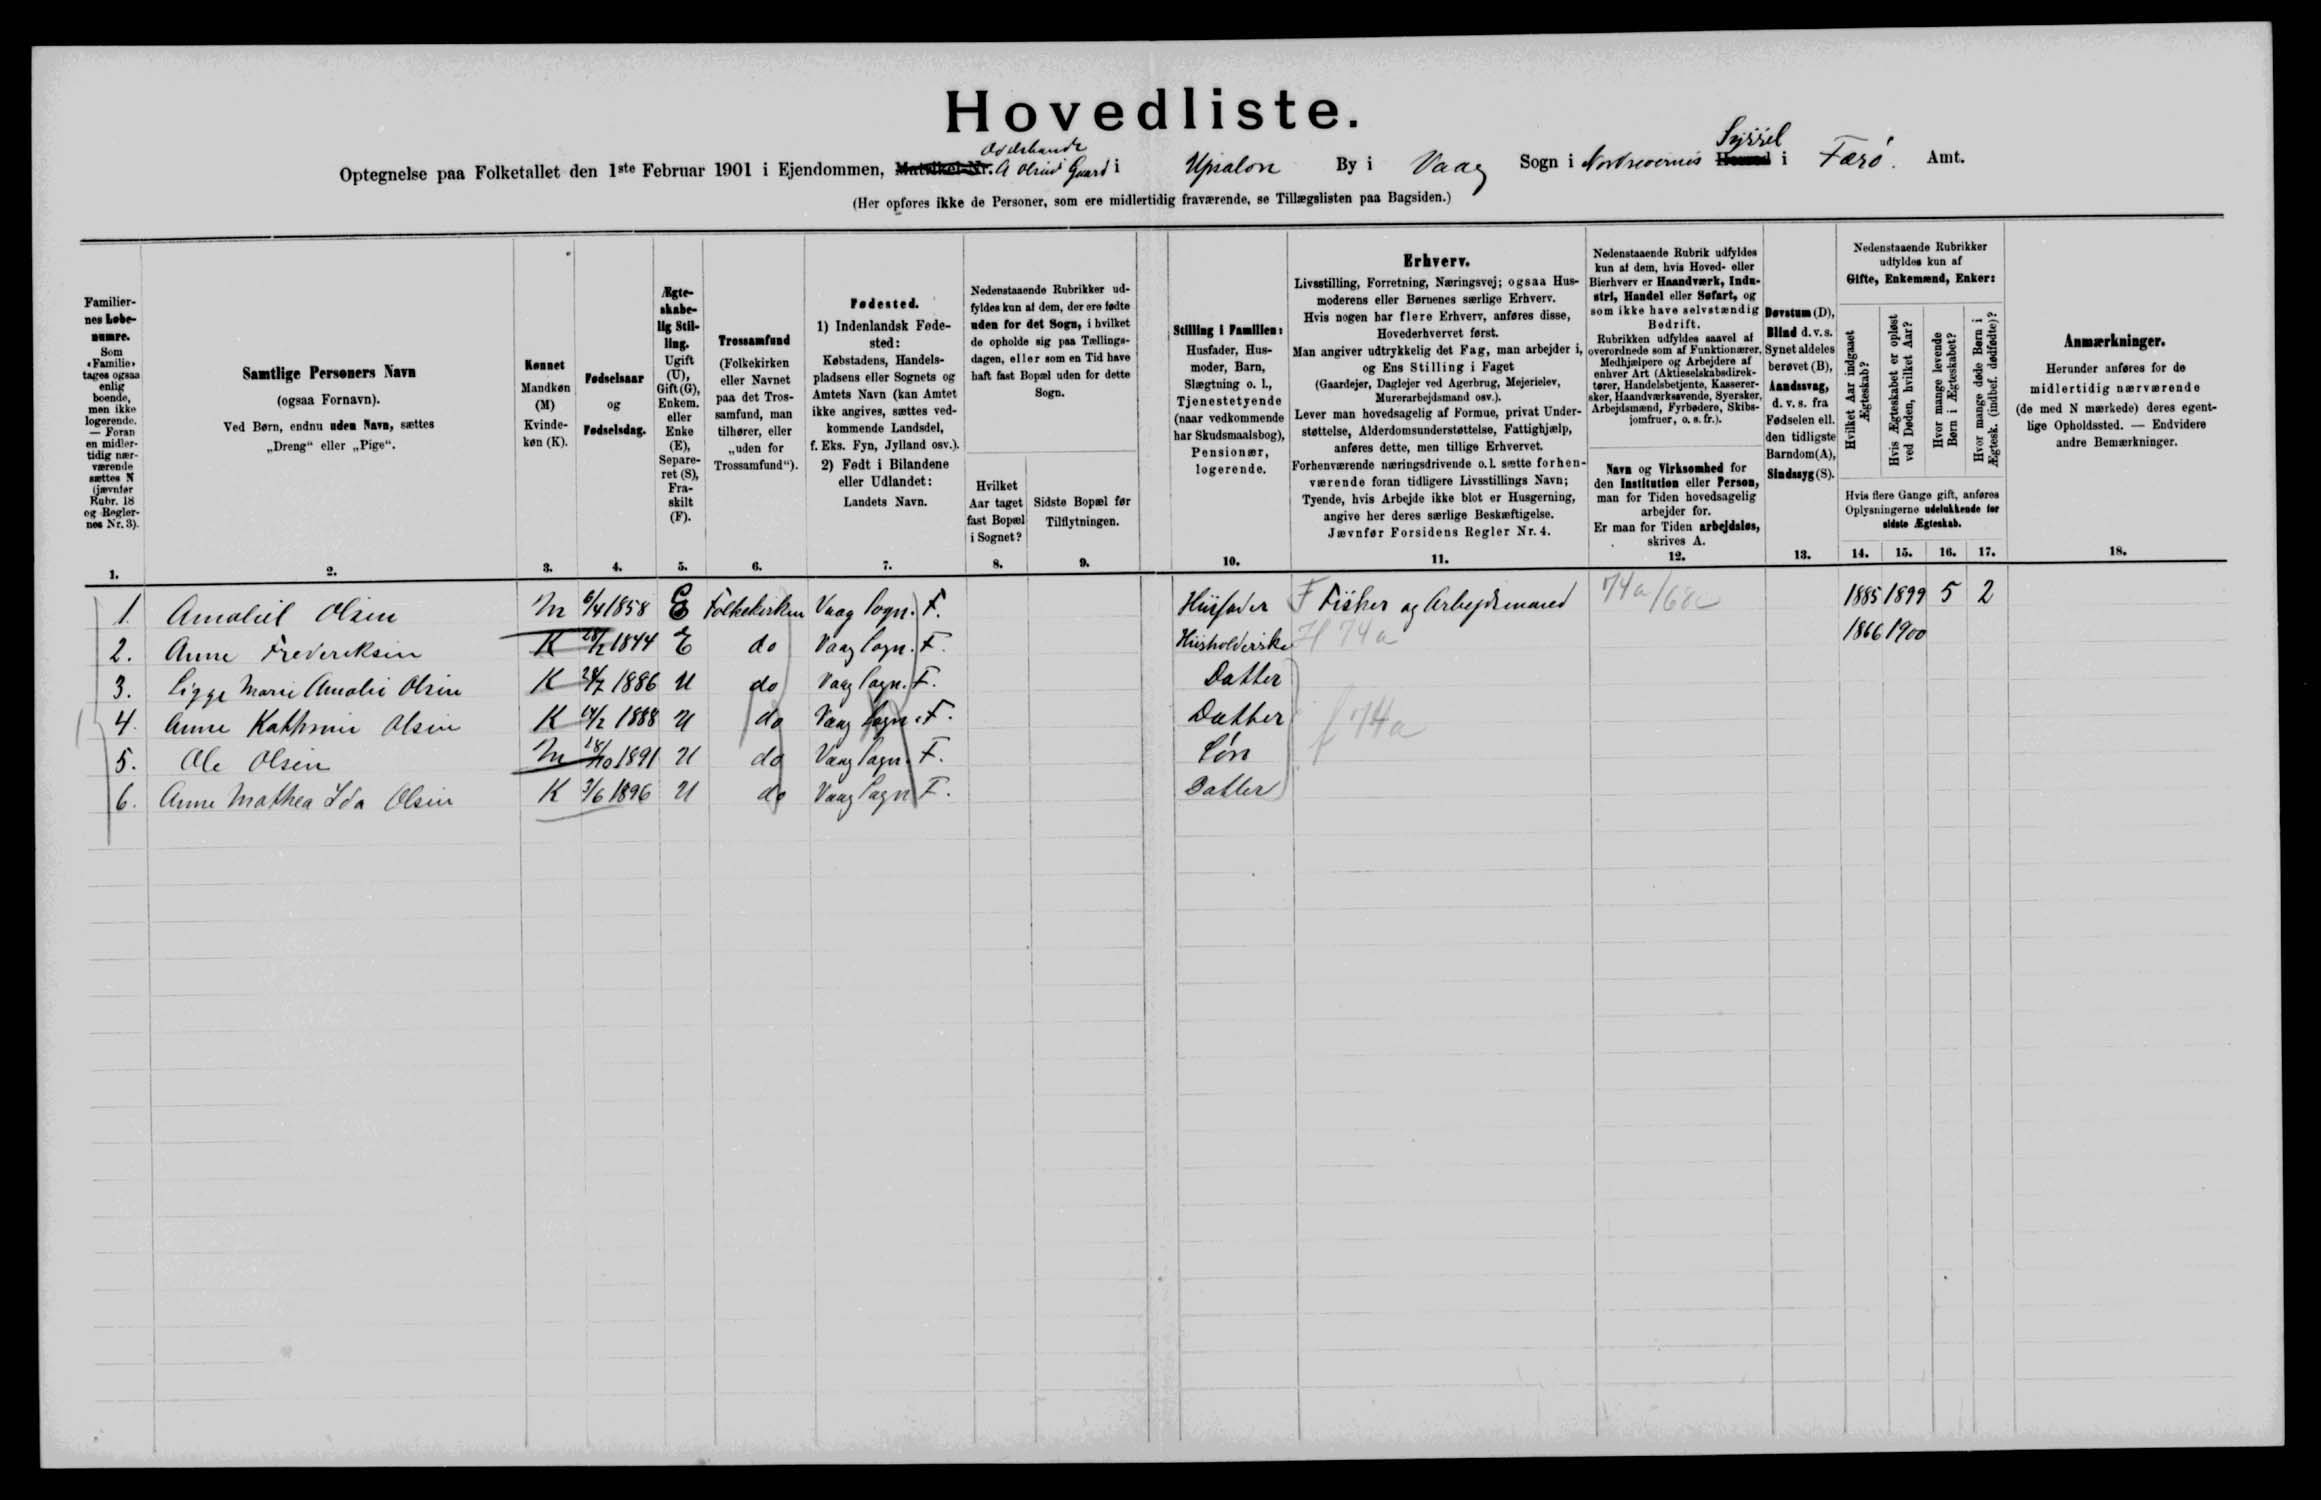 Hovedliste.
Optegnelse paa Folketallet den 1ste Februar 1901 i Ejendommen, Matrikel-Nr. A Olsens Gaard i Upsalon By i Vaag Sogn i Herred Syssel i Færö. Amt.
(Her opføres ikke de Personer, som ere midlertidig fraværende, se Tillægslisten paa Bagsiden.)
Familiernes Løbenumre.
Som «Familie» tages ogsaa enlig boende, men ikke logerende. — Foran en midlertidig nærværende sættes N (jævnfør Rubr. 18 og Reglernes Nr. 3).
Samtlige Personers Navn
(ogsaa Fornavn).
Ved Børn, endnu uden Navn, sættes
„Dreng“ eller „Pige“.
Kønnet
Mandkøn (M)
Kvindekøn (K).
Fødselsaar
og
Fødselsdag.
Ægteskabelig Stilling.
Ugift (U), Gift (G), Enkem. eller Enke (E), Separeret (S), Fraskilt (F).
Trossamfund
(Folkekirken eller Navnet paa det Trossamfund, man tilhører, eller „uden for Trossamfund“).
Fødested.
1) Indenlandsk Fødested:
Købstadens, Handelspladsens eller Sognets og Amtets Navn (kan Amtet ikke angives, sættes vedkommende Landsdel, f. Eks. Fyn, Jylland osv.).
2) Født i Bilandene eller Udlandet:
Landets Navn.
Nedenstaaende Rubrikker udfyldes kun af dem, der ere fødte uden for det Sogn, i hvilket de opholde sig paa Tællingsdagen, eller som en Tid have haft fast Bopæl uden for dette Sogn.
Hvilket Aar taget fast Bopæl i Sognet?
Sidste Bopæl før Tilflytningen.
Stilling i Familien:
Husfader, Husmoder, Barn, Slægtning o. l., Tjenestetyende (naar vedkommende har Skudsmaalsbog), Pensionær, logerende.
Erhverv.
Livsstilling, Forretning, Næringsvej; ogsaa Husmoderens eller Børnenes særlige Erhverv.
Hvis nogen har flere Erhverv, anføres disse, Hovederhvervet først.
Man angiver udtrykkelig det Fag, man arbejder i, og Ens Stilling i Faget
(Gaardejer, Daglejer ved Agerbrug, Mejerielev, Murerarbejdsmand osv.).
Lever man hovedsagelig af Formue, privat Understøttelse, Alderdomsunderstøttelse, Fattighjælp, anføres dette, men tillige Erhvervet.
Forhenværende næringsdrivende o. l. sætte forhenværende foran tidligere Livsstillings Navn;
Tyende, hvis Arbejde ikke blot er Husgerning, angive her deres særlige Beskæftigelse.
Jævnfør Forsidens Regler Nr. 4.
Nedenstaaende Rubrik udfyldes kun af dem, hvis Hoved- eller Bierhverv er Haandværk, Industri, Handel eller Søfart, og som ikke have selvstændig Bedrift.
Rubrikken udfyldes saavel af overordnede som af Funktionærer, Medhjælpere og Arbejdere af enhver Art (Aktieselskabsdirektører, Handelsbetjente, Kasserersker, Haandværkssvende, Syersker, Arbejdsmænd, Fyrbødere, Skibsjomfruer, o. s. fr.).
Navn og Virksomhed for den Institution eller Person, man for Tiden hovedsagelig arbejder for.
Er man for Tiden arbejdsløs, skrives A.
Døvstum (D), Blind d. v. s. Synet aldeles berøvet (B), Aandssvag, d. v. s. fra Fødselen ell. den tidligste Barndom (A), Sindssyg (S).
Nedenstaaende Rubrikker udfyldes kun af
Gifte, Enkemænd, Enker:
Hvilket Aar indgaaet Ægteskab?
Hvis Ægteskabet er opløst ved Døden, hvilket Aar?
Hvor mange levende Børn i Ægteskabet?
Hvor mange døde Børn i Ægtesk. (indbef. dødfødte)?
Hvis flere Gange gift, anføres Oplysningerne udelukkende for sidste Ægteskab.
Anmærkninger.
Herunder anføres for de midlertidig nærværende (de med N mærkede) deres egentlige Opholdssted. — Endvidere andre Bemærkninger.
1. 2. 3. 4. 5. 6. 7. 8. 9. 10. 11. 12. 13. 14. 15. 16. 17. 18.
1. Amaliel Olsen M 6/4 1858 E Folkekirken Vaag Sogn. F. Husfader F Fisker og Arbejdsmand 74a/68c 1885 1899 5 2
2. Anne Frederiksen K 28/2 1844 E do Vaag Sogn. F. Husholderske H 74a 1866 1900
3. Sigga Marie Amalie Olsen K 24/7 1886 U do Vaag Sogn. F. Datter
4. Anne Kathrine Olsen K 14/2 1888 U do Vaag Sogn. F. Datter f 74a
5. Ole Olsen M 18/10 1891 U do Vaag Sogn. F. Søn
6. Anne Mathea Ida Olsen K 3/6 1896 U do Vaag Sogn F. Datter